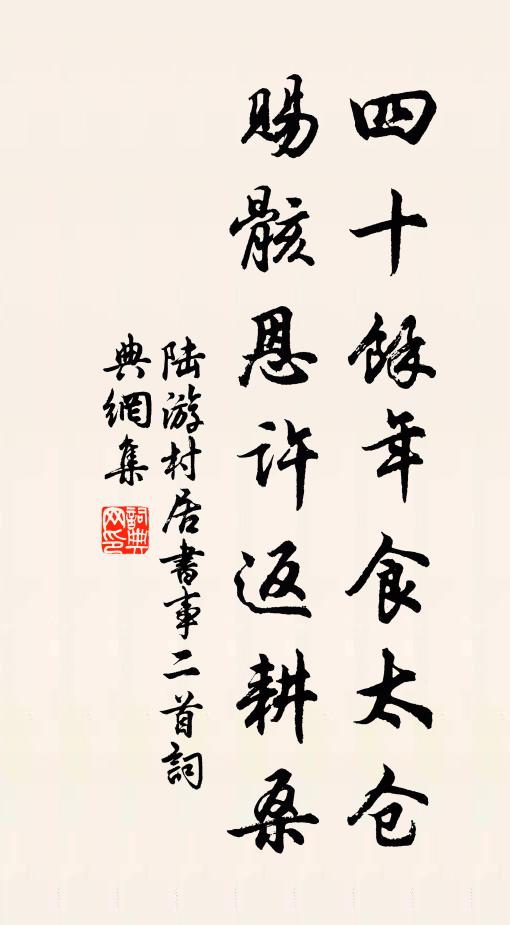 四十餘年食太仓
賜骸恩许返耕桑
陆游村居書事二首詞
典網集
詞典
网印